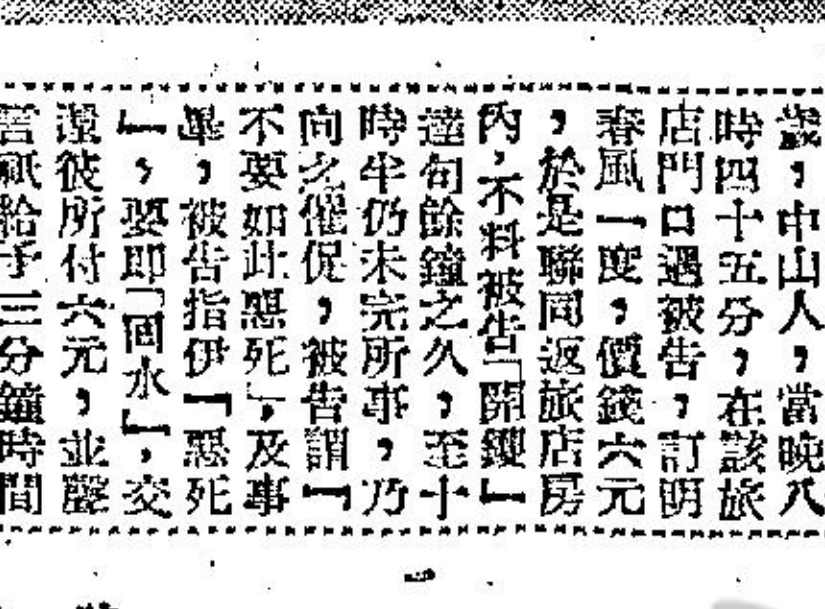 歲，中山人，當晚八
時四十五分，在該旅
店門口遇被告，訂明
春風一度，價錢六元
，於是聯同返旅店房
內，不料被告「開鑼」
達句餘鐘之久，至十
時半仍未完所事，乃
向之催促，被告謂「
不要如此惡死」，及事
畢，被告指伊「惡死
」，要即「回水」，交
還彼所付六元，並聲
言祇給予三分鐘時間